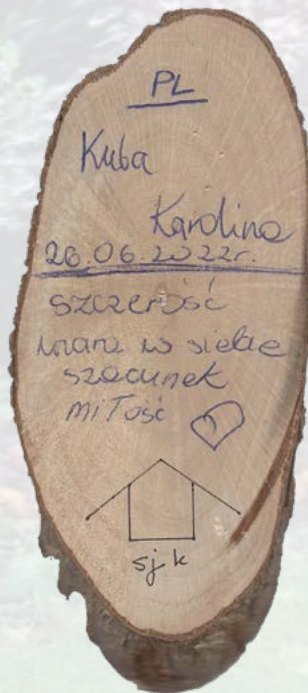 PL
Kuba
Karolina
26.06.2022r.
szczerość
wiara w siebie
szacunek
miłość
sj k